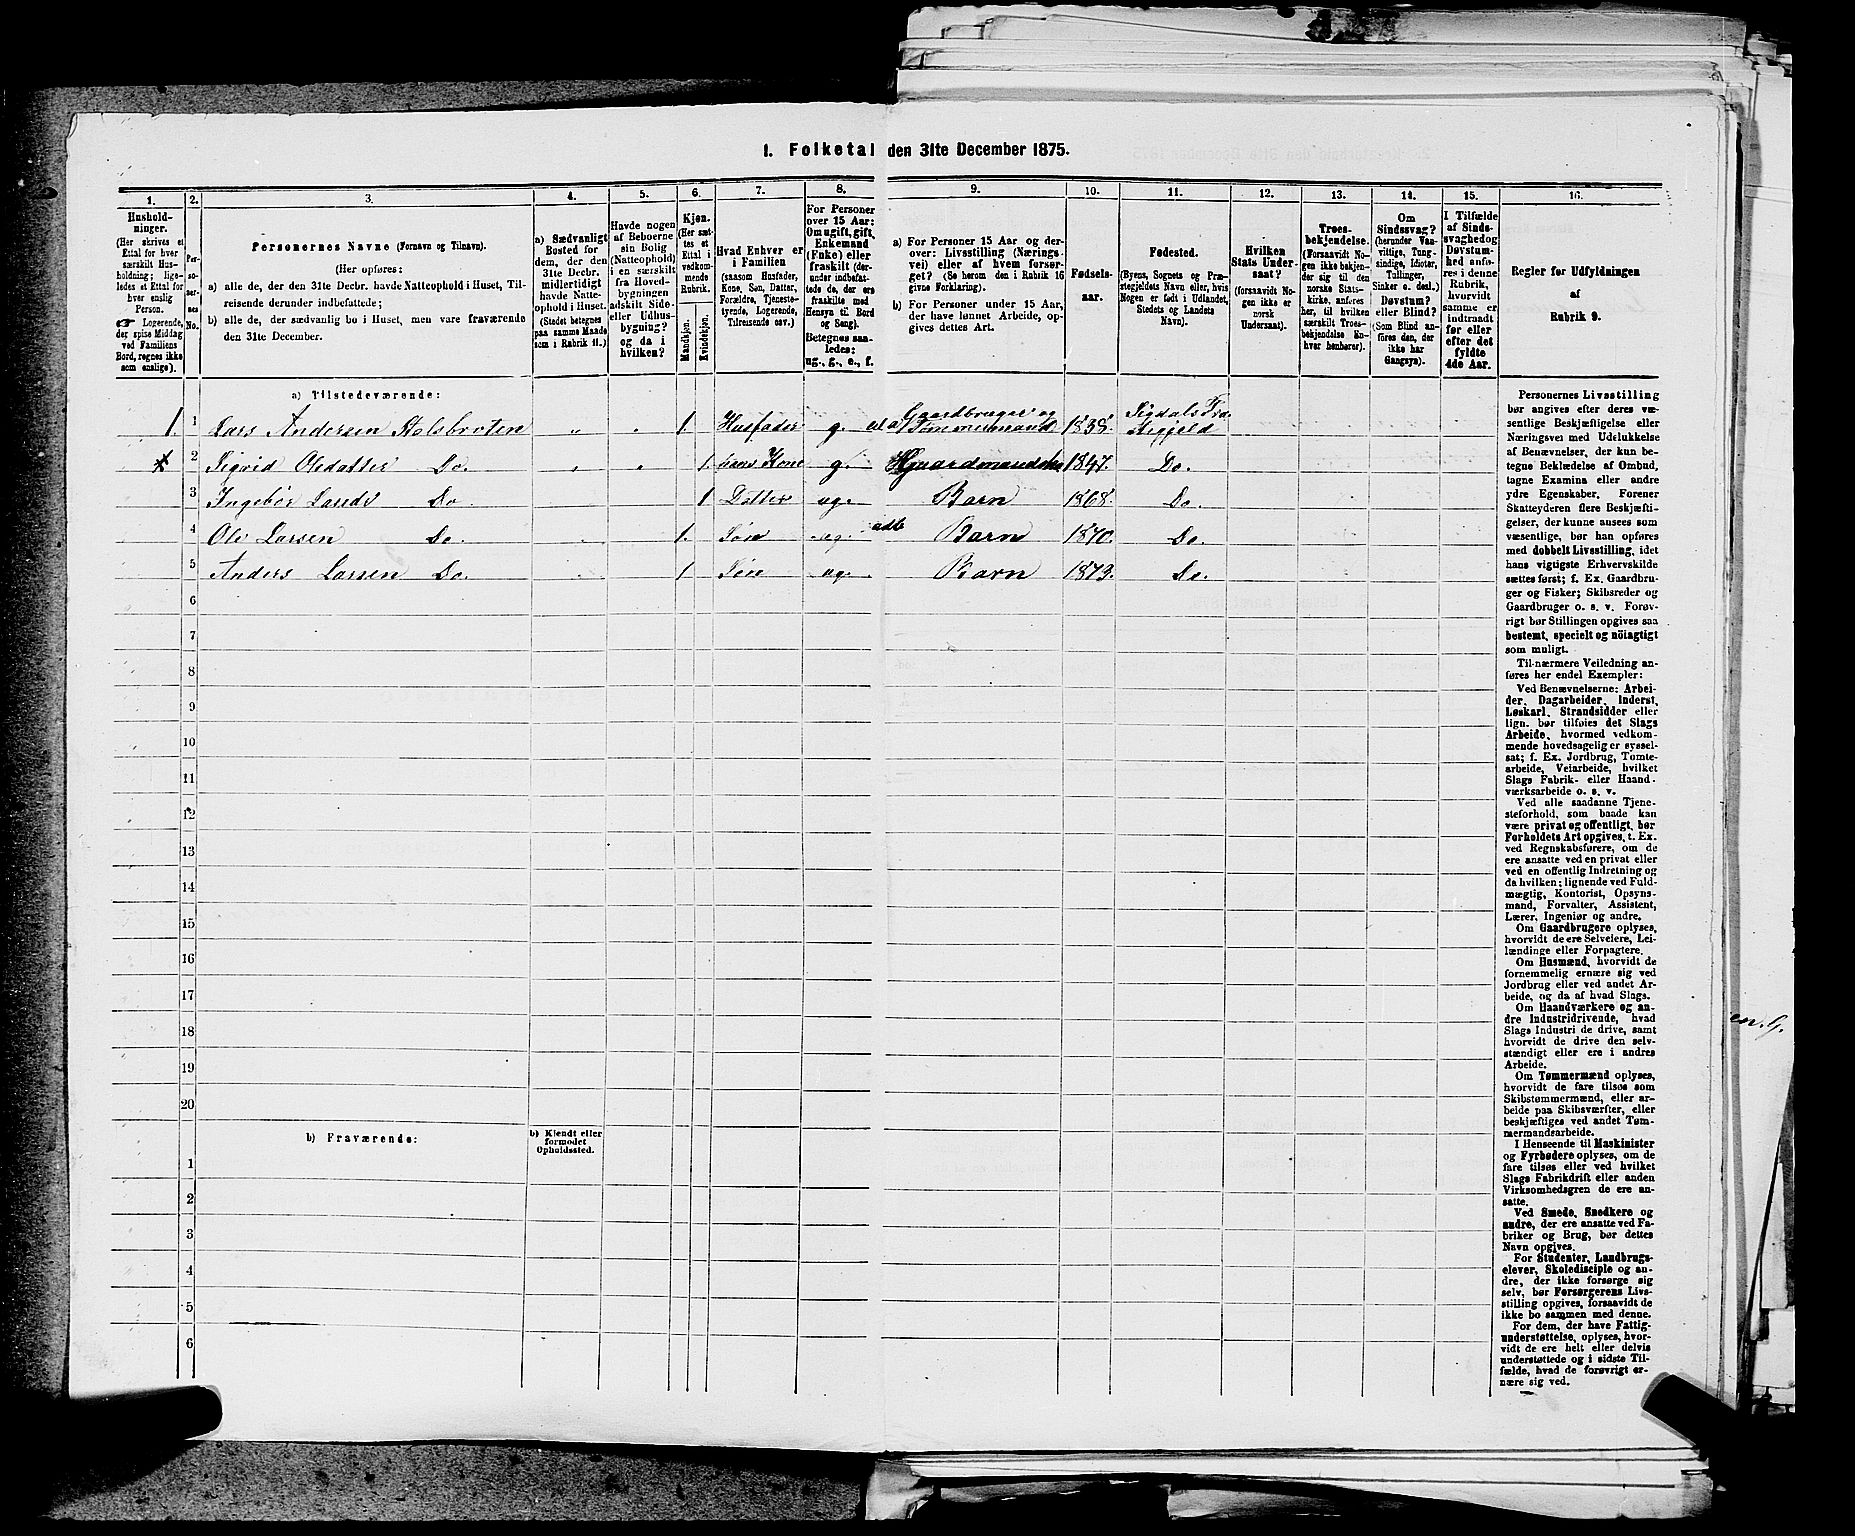 1. Folketal den 31te December 1875.
1.
2.
3.
4.
5.
6.
7.
8.
9.
10.
11.
12.
13.
14.
15.
16.
Hushold-
ninger.
(Her skrives et
Ettal for hver
særskilt Hus-
holdning; lige-
ledes et Ettal for
hver enslig
Person.
☞ Logerende,
der spise Middag
ved Familiens
Bord, regnes ikke
som enslige).
Per-
so-
ner-
nes
No.
Personernes Navne (Fornavn og Tilnavn).
(Her opføres:
a) alle de, der den 31te Decbr. havde Natteophold i Huset, Til-
reisende derunder indbefattede;
b) alle de, der sædvanlig bo i Huset, men vare fraværende
den 31te December.
a) Sædvanligt
Bosted for
dem, der den
31te Decbr.
midlertidigt
havde Natte-
ophold i Huset.
(Stedet betegnes
paa samme Maade
som i Rubrik 11.)
Havde nogen
af Beboerne
sin Bolig
(Natteophold)
i en særskilt
fra Hoved-
bygningen
adskilt Side-
eller Udhus-
bygning?
og da i
hvilken?
Kjøn.
(Her sæt-
tes et
Ettal i
vedkom-
mende
Rubrik.
Mandkjøn.
Kvindekjøn.
Hvad Enhver er
i Familien
(saasom Husfader,
Kone, Søn, Datter,
Forældre, Tjeneste-
tyende, Logerende,
Tilreisende osv.)
For Personer
over 15 Aar:
Om ugift, gift,
Enkemand
(Enke) eller
fraskilt (der-
under indbefat-
tede de, der ere
fraskilte med
Hensyn til Bord
og Seng).
Betegnes saa-
ledes:
ug., g., e., f.
a) For Personer 15 Aar og der-
over: Livsstilling (Nærings-
vei) eller af hvem forsør-
get? (Se herom den i Rubrik 16
givne Forklaring).
b) For Personer under 15 Aar,
der have lønnet Arbeide, op-
gives dettes Art.
Fødsels-
aar.
Fødested.
(Byens, Sognets og Præ-
stegjeldets Navn eller, hvis
Nogen er født i Udlandet,
Stedets og Landets
Navn).
Hvilken
Stats Under-
saat?
(forsaavidt No-
gen ikke er
norsk
Undersaat).
Troes-
bekjendelse.
(Forsaavidt No-
gen ikke bekjen-
der sig til den
norske Stats-
kirke, anføres
her, til hvilken
særskilt Troes-
bekjendelse En-
hver henhører).
Om
Sindssvag?
(herunder Van-
vittige, Tung-
sindige, Idioter,
Tullinger,
Sinker o. desl.)
Døvstum?
eller Blind?
(Som Blind an-
føres den, der
ikke har
Gangsyn).
I Tilfælde
af Sinds-
svaghed og
Døvstum-
hed anfø-
res i denne
Rubrik,
hvorvidt
samme er
indtraadt
før eller
efter det
fyldte
4de Aar.
Regler for Udfyldningen
af
Rubrik 9.
a) Tilstedeværende:
1. 1 Lars Andersen Stolsbroten „ „ 1. Husfader g. Gaardbruger og Tømmermand 1838. Sigdals Præstegjeld
2 Sigrid Olsdatter Do. „ „ 1. hans Kone g. 1847. Do.
3 Ingebor Larsdr Do 1 Datter ug. Barn 1868. Do.
4 Ole Larsen Do. 1. Søn ug. Barn 1870. Do.
5 Anders Larsen Do. 1 Søn ug. Barn 1873. Do.
6
7
8
9
10
11
12
13
14
15
16
17
18
19
20
b) Fraværende:
b) Kjendt eller
formodet
Opholdssted.
1
2
3
4
5
6
Personernes Livsstilling
bør angives efter deres væ-
sentlige Beskjæftigelse eller
Næringsvei med Udelukkelse
af Benævnelser, der kun be-
tegne Beklædelse af Ombud,
tagne Examina eller andre
ydre Egenskaber. Forener
Skatteyderen flere Beskjæfti-
gelser, der kunne ansees som
væsentlige, bør han opføres
med dobbelt Livsstilling, idet
hans vigtigste Erhvervskilde
sættes først; f. Ex. Gaardbru-
ger og Fisker; Skibsreder og
Gaardbruger o. s. v. Forøv-
rigt bør Stillingen opgives saa
bestemt, specielt og nöiagtigt
som muligt.
Til nærmere Veiledning an-
føres her endel Exempler:
Ved Benævnelserne: Arbei-
der, Dagarbeider, Inderst,
Løskarl, Strandsidder eller
lign. bør tilføies det Slags
Arbeide, hvormed vedkom-
mende hovedsagelig er syssel-
sat; f. Ex. Jordbrug, Tomte-
arbeide, Veiarbeide, hvilket
Slags Fabrik- eller Haand-
værksarbeide o. s. v.
Ved alle saadanne Tjene-
steforhold, som baade kan
være privat og offentligt, bør
Forholdets Art opgives, t. Ex.
ved Regnskabsførere, om de
ere ansatte ved en privat eller
ved en offentlig Indretning og
da hvilken; lignende ved Fuld-
mægtig, Kontorist, Opsyns-
mand, Forvalter, Assistent,
Lærer, Ingeniør og andre.
Om Gaardbrugere oplyses,
hvorvidt de ere Selveiere, Lei-
lændinge eller Forpagtere.
Om Husmænd, hvorvidt de
fornemmelig ernære sig ved
Jordbrug eller ved andet Ar-
beide, og da af hvad Slags.
Om Haandværkere og an-
dre Industridrivende, hvad
Slags Industri de drive, samt
hvorvidt de drive den selv-
stændigt eller ere i andres
Arbeide.
Om Tømmermænd oplyses,
hvorvidt de fare tilsøs som
Skibstømmermænd, eller ar-
beide paa Skibsværfter, eller
beskjæftiges ved andet Tøm-
mermandsarbeide.
I Henseende til Maskinister
og Fyrbødere oplyses, om de
fare tilsøs eller ved hvilket
Slags Fabrikdrift eller anden
Virksomhedsgren de ere an-
satte.
Ved Smede, Snedkere og
andre, der ere ansatte ved Fa-
briker og Brug, bør dettes
Navn opgives.
For Studenter, Landbrugs-
elever, Skoledisciple og an-
dre, der ikke forsørge sig
selv, bør Forsørgerens Livs-
stilling opgives, forsaavidt de
ikke bo sammen med denne.
For dem, der have Fattig-
understøttelse, oplyses, hvor-
vidt de ere helt eller delvis
understøttede og i sidste Til-
fælde, hvad de forøvrigt er-
nære sig ved.